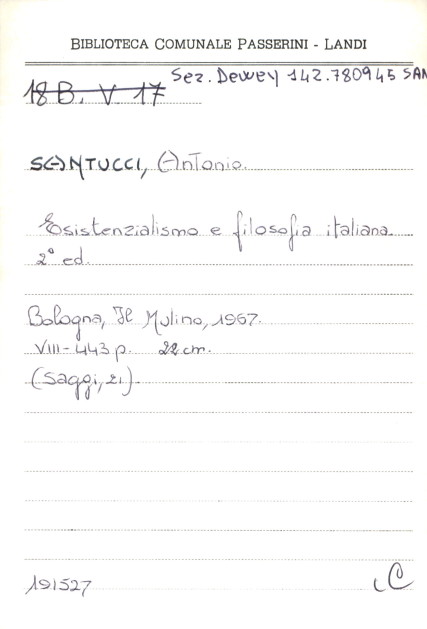 BIBLIOTECA COMUNALE PASSERINI - LANDI
Sez. Dewey 142.780945 SAN
18 B. V 17
SANTUCCI, Antonio.
Esistenzialismo e filosofia italiana.
2ª ed.
Bologna, Il Mulino, 1967.
VIII-443 p. 22 cm.
(Saggi, 21).
191527